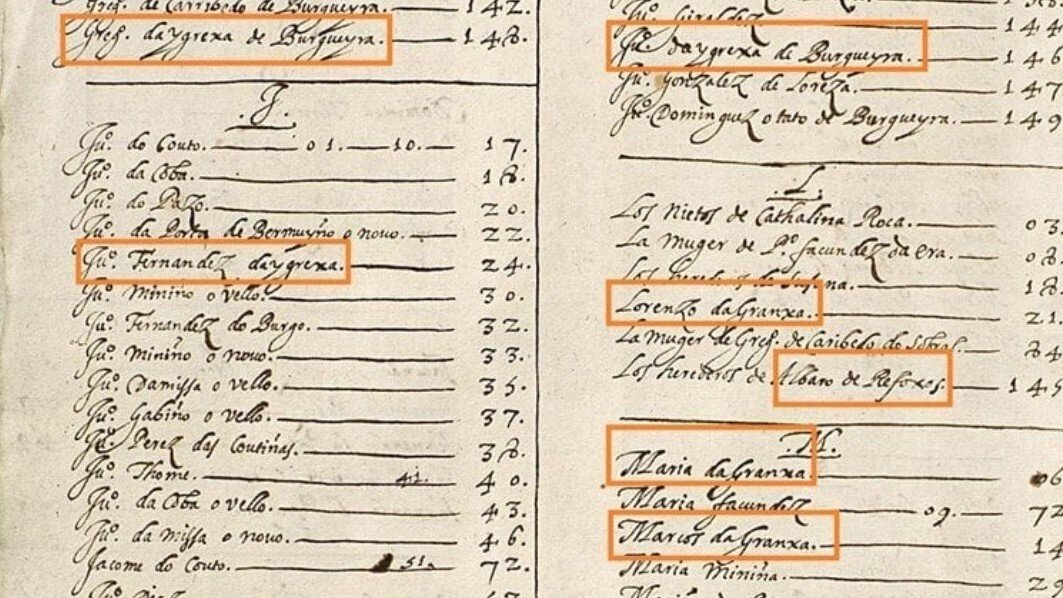 Greg. de Carribedo de Burgueyra. 142.
Greg. daygrexa de Burgueyra. 148.
J.
Juº. do Couto. 01. 10. 17.
Juº. da Coba. 18.
Juº. do Pazo. 20.
Juº. da Porta de Bermuyño o novo. 22.
Juº. Fernandez daygrexa. 24.
Juº. Miniño o vello. 30.
Juº. Fernandez do Burgo. 32.
Juº. Miniño o novo. 33.
Juº. Damissa o vello. 35.
Juº. Gabiño o vello. 37.
Juº. Perez das Coutiñas. 38.
Juº. Thome. 41. 40.
Juº. da Coba o vello. 43.
Juº. da missa o novo. 46.
Jacome do Couto. 51. 72.
Juº. Giraldez 144
Juº. daygrexa de Burgueyra. 146
Juº. Gonzalez de Loreza. 147
Juº. Dominguez o tato de Burgueyra. 149
L.
Los Nietos de Cathalina Roca. 03.
La Muger de Pº. facundez da era. 08.
Los herederos de 18.
Lorenzo daGranxa. 21.
La Muger de Greg. de Caribedo do Sobral. 84
Los herederos de Albaro de Refoxos. 145
M.
Maria da Granxa. 06
Maria facundez 09. 72
Marcos da Granxa. 14
Maria Miniña. 29